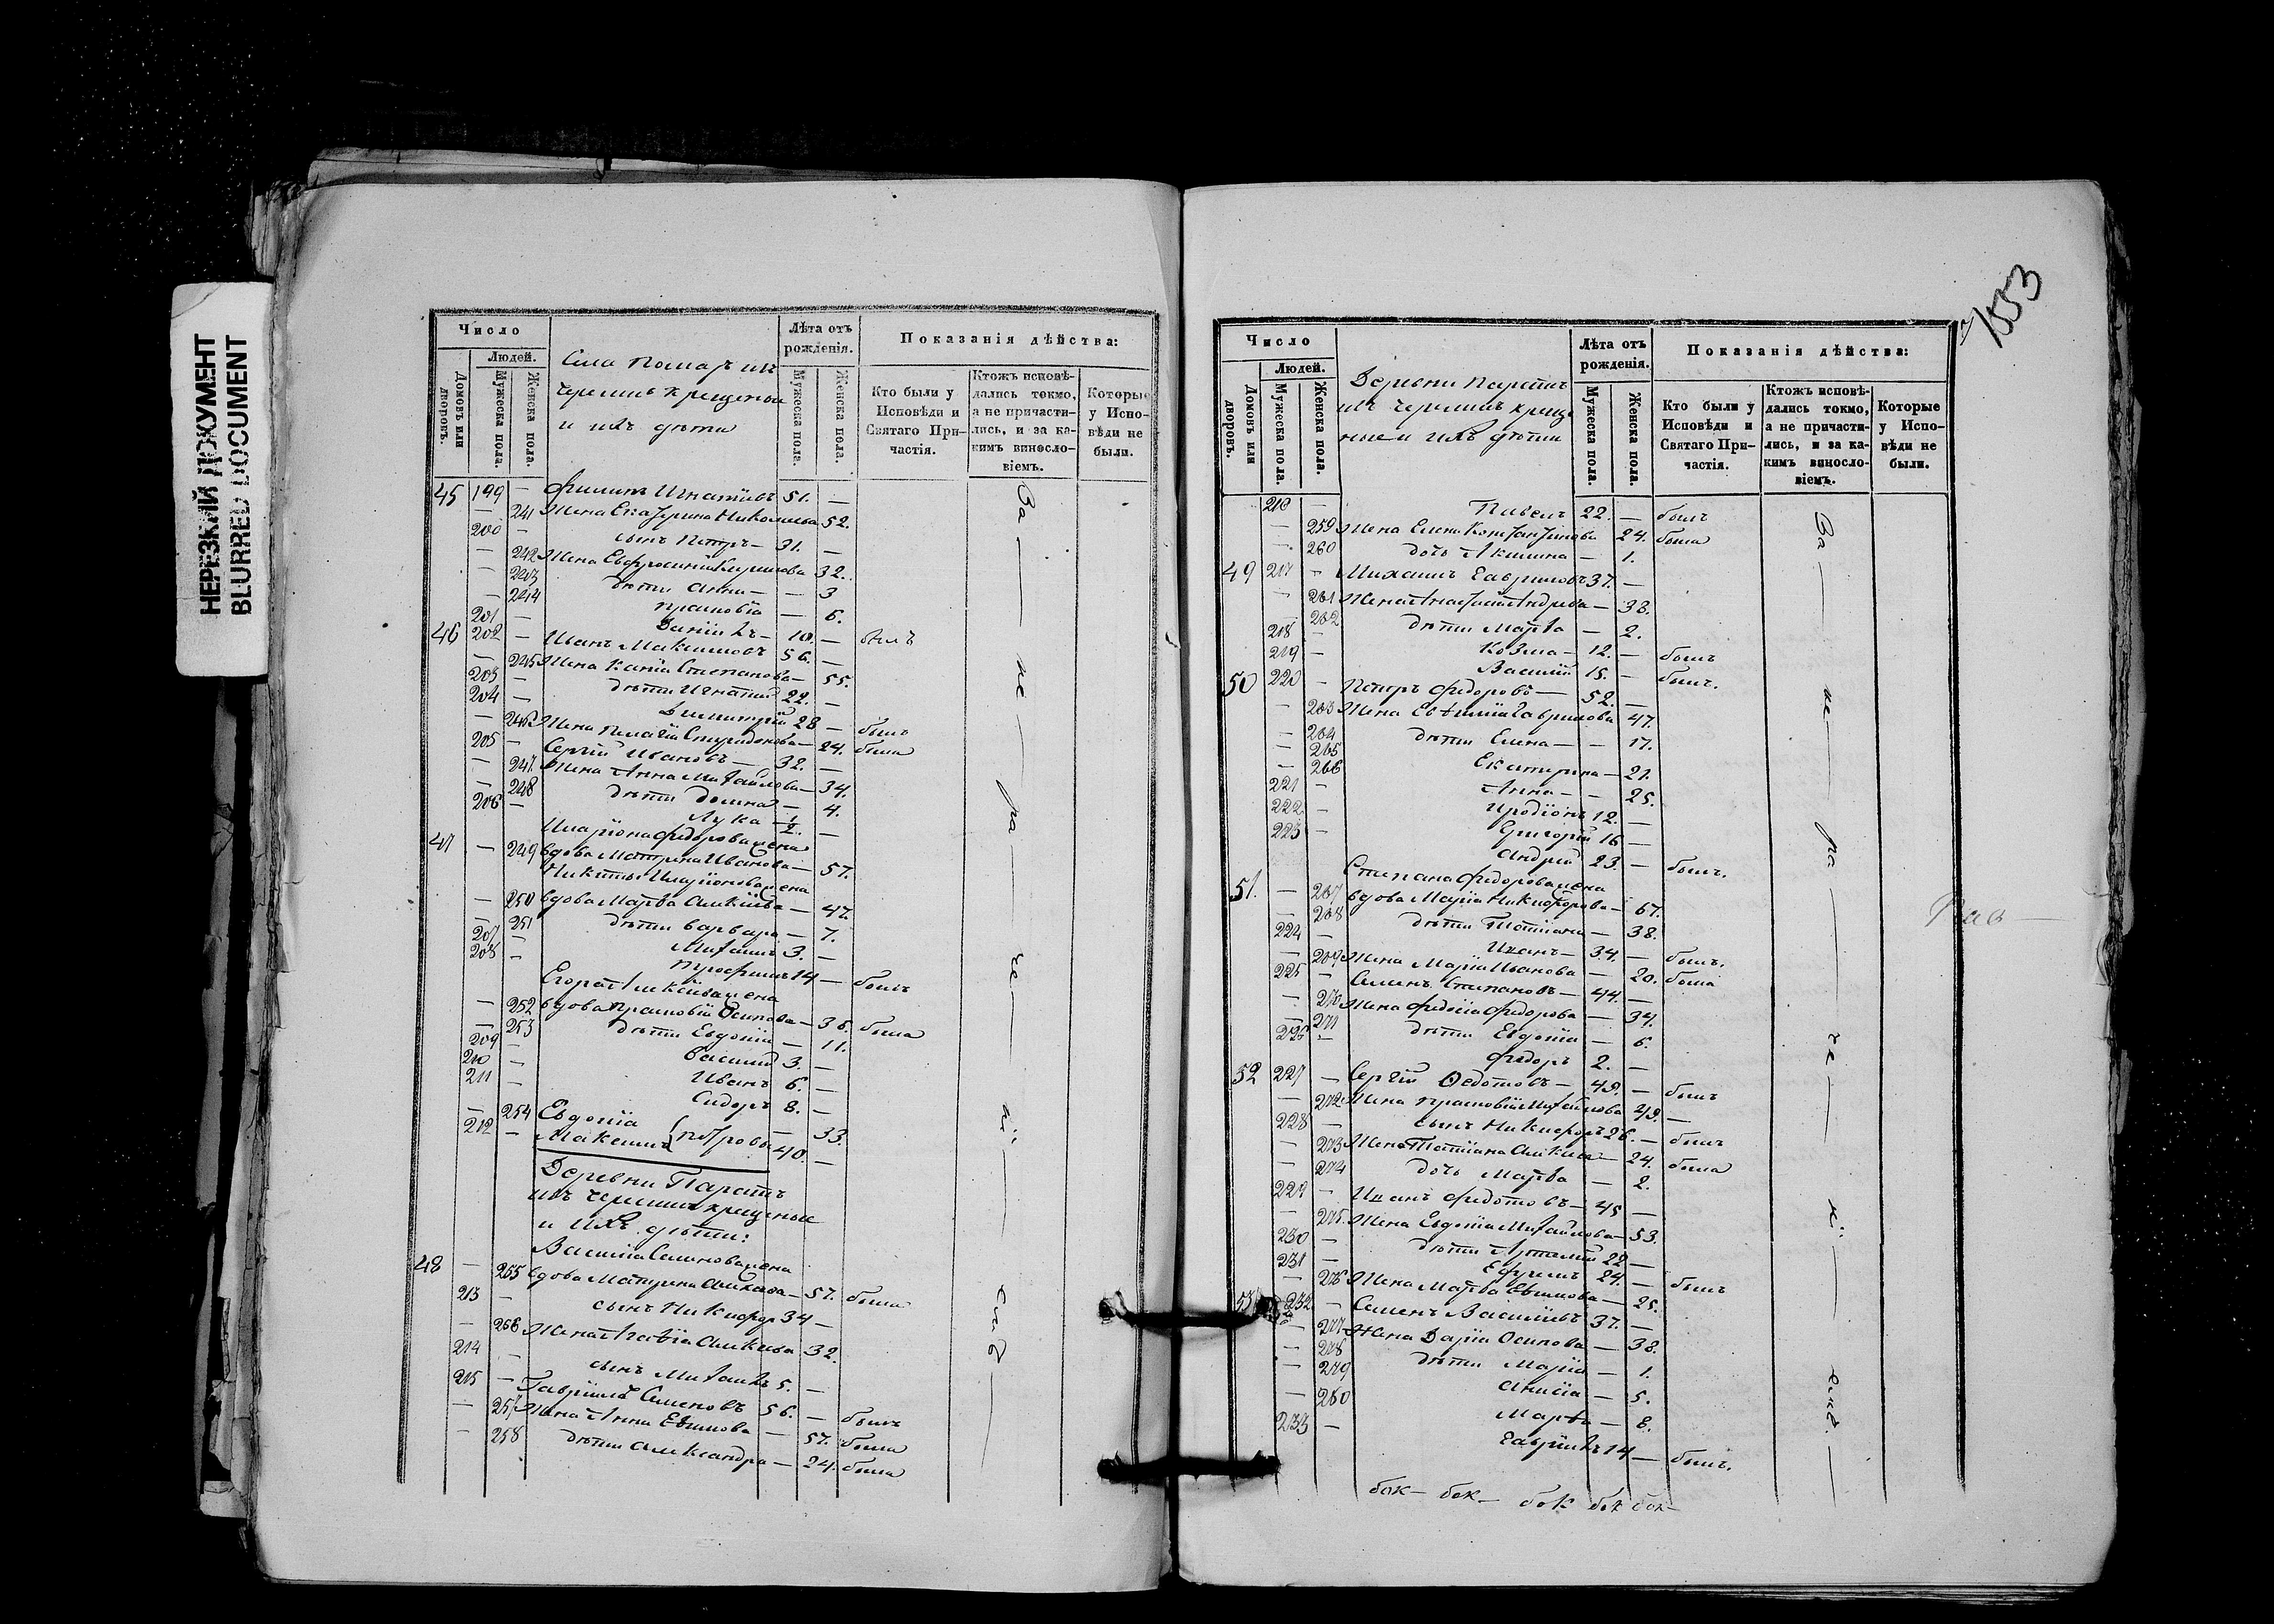 НЕРЕЗКИЙ ДОКУМЕНТ
BLURRED DOCUMENT
Число
Людей.
Домовъ или дворовъ.
Мужеска пола.
Женска пола.
Села
черемисъ крещеные
и ихъ дѣти
Лѣта отъ рожденія.
Мужеска пола.
Женска пола.
Показанія дѣйства:
Кто были у Исповѣди и Святаго Причастія.
Ктожъ исповѣдались токмо, а не причастились, и за какимъ винословіемъ.
Которые у Исповѣди не были.
45 199 — Филипъ Игнатіевъ 51. —
— 241 Жена Екатерина Николаева 52.
200 — сынъ Петръ — 31. —
— 242 Жена Евфросинія Кирилова 32.
— 243 дѣти Анна — — 3
— 244 Прасковія — 6.
201 — Даніилъ — 10. — былъ
46 202 — Иванъ Максимовъ 56. —
— 245 Жена Степанова — 55.
203 — дѣти Игнатій 22. —
204 — Димитрій 28 — былъ
— 246 Жена Пелагія Спиридонова — 24. была
205 — Сергій Ивановъ — 32. —
— 247 Жена Анна Михайлова — 34.
— 248 дѣти Домна — 4.
206 — Лука — 1/2. —
Иларіона Федорова жена
47 — 249 вдова Матрена Иванова — 57.
Никиты Иларіонова жена
— 250 вдова Марфа Алексіева — 47.
— 251 дѣти Варвара — 7.
207 — Михаилъ 3. —
208 — Трофимъ 14 — былъ
Егора Алексіева жена
— 252 вдова Прасковія Осипова — 36. была
— 253 дѣти Евдокія — 11.
209 — Василій 3. —
210 — Иванъ 6. —
211 — Сидоръ 8. —
— 254 Евдокія — 33.
212 — Максимъ Петровы 40. —
Деревни Паратъ
изъ черемисъ крещеные
и ихъ дѣти:
Василія Семенова жена
48 — 255 вдова Матрена Алексіева — 57. была
213 — сынъ Никифоръ 34 —
— 256 Жена Агафія Алексіева 32.
214 — сынъ Михаилъ 5. —
215 — Гавріилъ Семеновъ 56. — былъ
— 257 Жена Анна Ефимова — 57. была
— 258 дѣти Александра — 24. была
За — не — ра — че — ні — емъ —
1553
Число
Людей.
Домовъ или дворовъ.
Мужеска пола.
Женска пола.
Деревни Паратъ
изъ черемисъ креще
ные и ихъ дѣти
Лѣта отъ рожденія.
Мужеска пола.
Женска пола.
Показанія дѣйства:
Кто были у Исповѣди и Святаго Причастія.
Ктожъ исповѣдались токмо, а не причастились, и за какимъ винословіемъ.
Которые у Исповѣди не были.
216 — Павелъ 22. — былъ
— 259 Жена Елена Константинова 24. была
— 260 дочь Акилина — 1.
49 217 — Михаилъ Гавриловъ 37. —
— 261 Жена Анастасія Андреева — 38.
— 262 дѣти Марфа — 2.
218 — Козма — 12. — былъ
219 — Василій 15. — былъ.
50 220 — Петръ Федоровъ — 52. —
— 263 Жена Евфимія Гаврилова 47.
— 264 дѣти Елена — — 17.
— 265 Екатерина — 21.
— 266 Анна — — 25.
221 — Иродіонъ 12. —
222 — Григорій 16 —
223 — Андрей 23. — былъ.
Степана Федорова жена
51. — 267 вдова Марія Никифорова — 67.
— 268 дѣти Татіана — 38.
224 — Иванъ — 34. — былъ.
— 269 Жена Марія Иванова — 20. была
225 — Семенъ Степановъ — 44. —
— 270 Жена Федосія Федорова — 34.
— 271 дѣти Евдокія — 6.
226 — Федоръ 2. —
52 227 — Сергій Федотовъ — 49. — былъ
— 272 Жена Прасковія Михайлова 49. —
228 — сынъ Никифоръ 26. — былъ
— 273 Жена Татіана Алексіева — 24. была
— 274 дочь Марфа — 2.
229 — Иванъ Федотовъ — 45 —
— 275. Жена Евдокія Михайлова — 53.
230 — дѣти Артемій 22 —
231 — Ефремъ 24. — былъ
— 276 Жена Марфа Ефимова — 25.
53 232 — Семенъ Василіевъ 37. —
— 277 Жена Дарія Осипова — 38.
— 278 дѣти Марія — 1.
— 279 Анисія — 5.
— 280 Марфа — 8.
233 — Гавріилъ 14 — былъ.
За — не — ра — че — ні — емъ. —